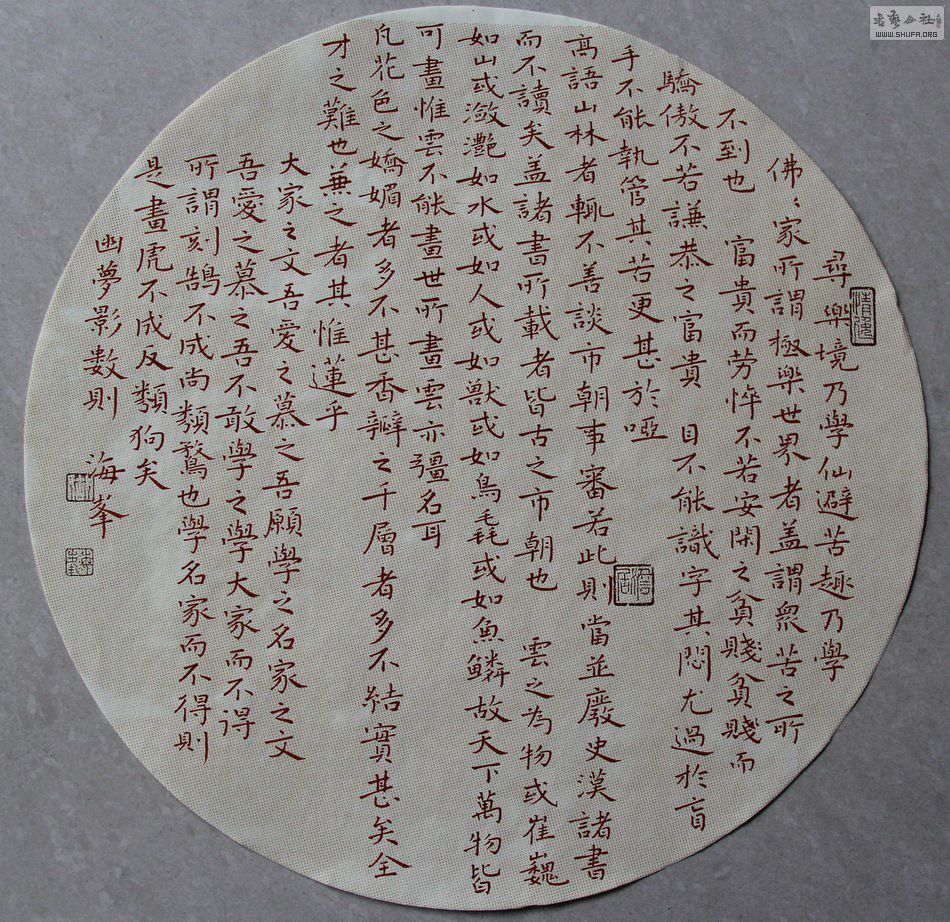 尋樂境乃學仙避苦趣乃學
佛〻家所謂極樂世界者盖謂衆苦之所
不到也 富貴而劳悴不若安閑之貧賤貧賤而
驕傲不若謙恭之富貴 目不能識字其悶尤過於盲
手不能執管其苦更甚於啞
高語山林者輒不善談市朝事審若此則當並廢史漢諸書
而不讀矣盖諸書所載者皆古之市朝也 雲之為物或崔巍
如山或潋灧如水或如人或如獸或如鳥毳或如魚鱗故天下萬物皆
可畫惟雲不能畫世所畫雲亦彊名耳
凡花色之嬌媚者多不甚香瓣之千層者多不結實甚矣全
才之難也兼之者其惟蓮乎
大家之文吾愛之慕之吾願學之名家之文
吾愛之慕之吾不敢學之學大家而不得
所謂刻鵠不成尚類鶩也學名家而不得則
是畫虎不成反類狗矣
幽夢影數則 海峯
书艺公社
WWW.SHUFA.ORG